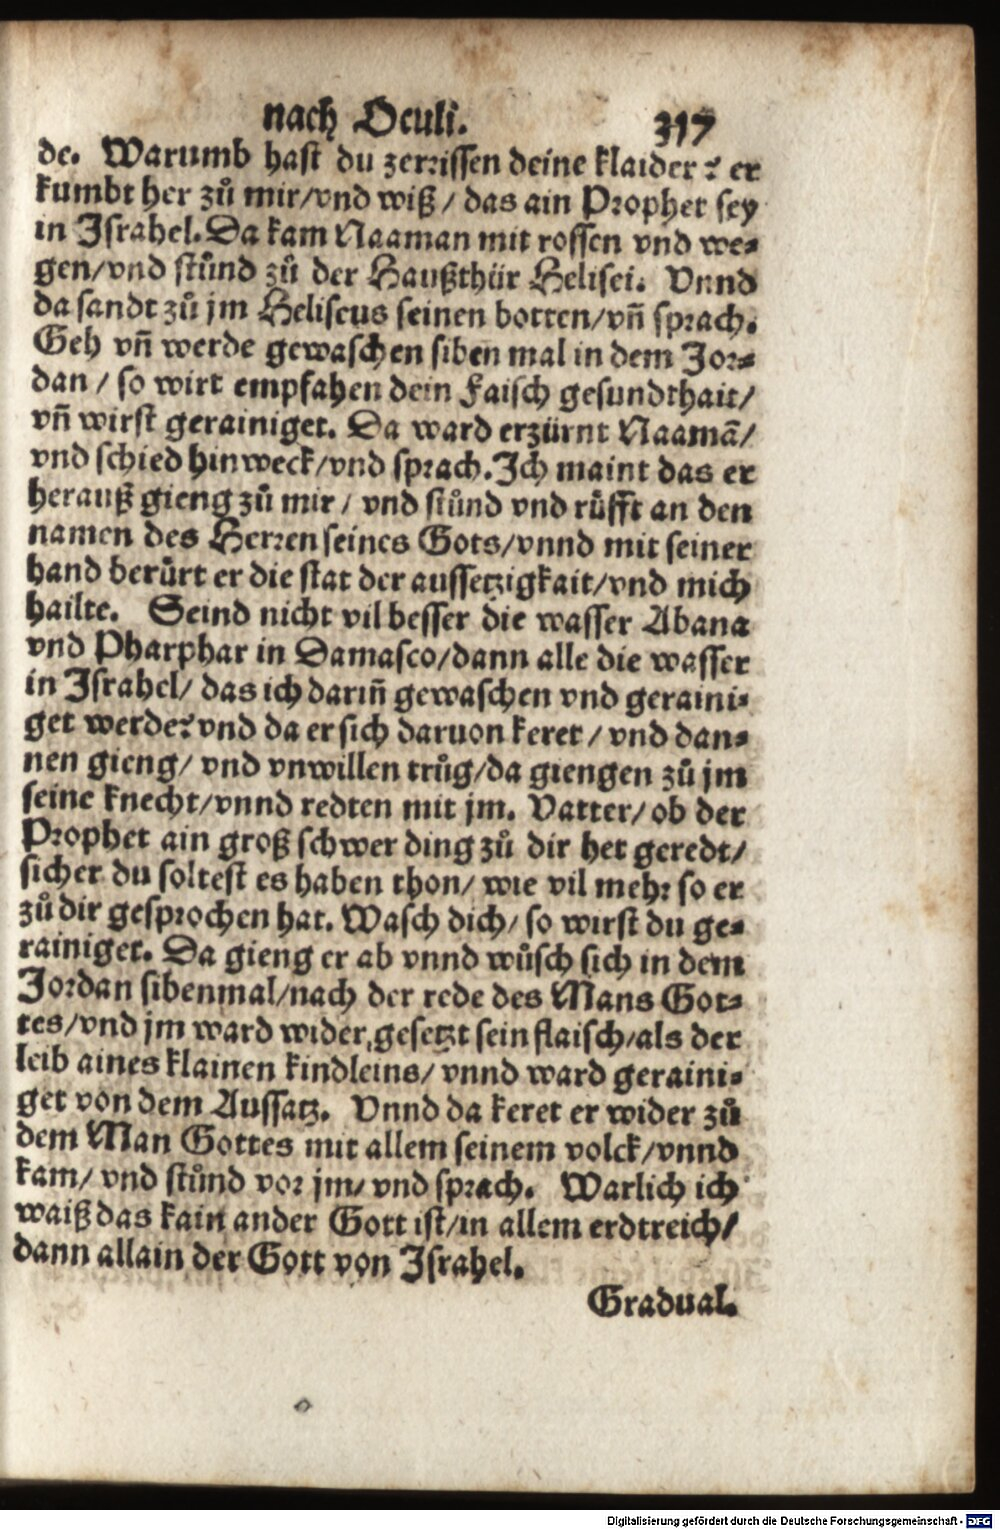 nach Oculi. 317
de. Warumb hast du zerrissen deine klaider? er
kumbt her zuͦ mir/vnd wiß/ das ain Prophet sey
in Israhel. Da kam Naaman mit rossen vnd we-
gen/vnd stuͦnd zuͦ der Haußthür Helisei. Vnnd
da sandt zuͦ jm Heliseus seinen botten/vn̄ sprach.
Geh vn̄ werde gewaschen siben mal in dem Jor-
dan/ so wirt empfahen dein flaisch gesundthait/
vn̄ wirst gerainiget. Da ward erzürnt Naamā/
vnd schied hinweck/vnd sprach. Ich maint das er
herauß gieng zuͦ mir/ vnd stuͦnd vnd ruͤfft an den
namen des Herren seines Gots/vnnd mit seiner
hand beruͤrt er die stat der aussetzigkait/vnd mich
hailte. Seind nicht vil besser die wasser Abana
vnd Pharphar in Damasco/dann alle die wasser
in Israhel/ das ich darin̄ gewaschen vnd geraini-
get werde? vnd da er sich daruon keret/ vnd dan-
nen gieng/ vnd vnwillen truͦg/da giengen zuͦ jm
seine knecht/vnnd redten mit jm. Vatter/ ob der
Prophet ain groß schwer ding zuͦ dir het geredt/
sicher du soltest es haben thon/ wie vil mehr so er
zuͦ dir gesprochen hat. Wasch dich/ so wirst du ge-
rainiget. Da gieng er ab vnnd wuͦsch sich in dem
Jordan sibenmal/nach der rede des Mans Got-
tes/vnd jm ward wider gesetzt sein flaisch/als der
leib aines klainen kindleins/ vnnd ward geraini-
get von dem Aussatz. Vnnd da keret er wider zuͦ
dem Man Gottes mit allem seinem volck/vnnd
kam/ vnd stuͦnd vor jm/ vnd sprach. Warlich ich
waiß das kain ander Gott ist/in allem erdtreich/
dann allain der Gott von Israhel.
Gradual.
Digitalisierung gefördert durch die Deutsche Forschungsgemeinschaft - DFG